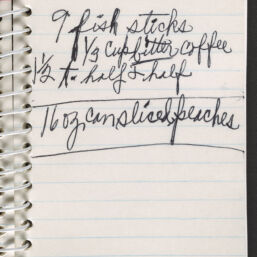 9 fish sticks
1/3 cup bitter coffee
1 1/2 t. half & half
16 oz, can sliced peaches